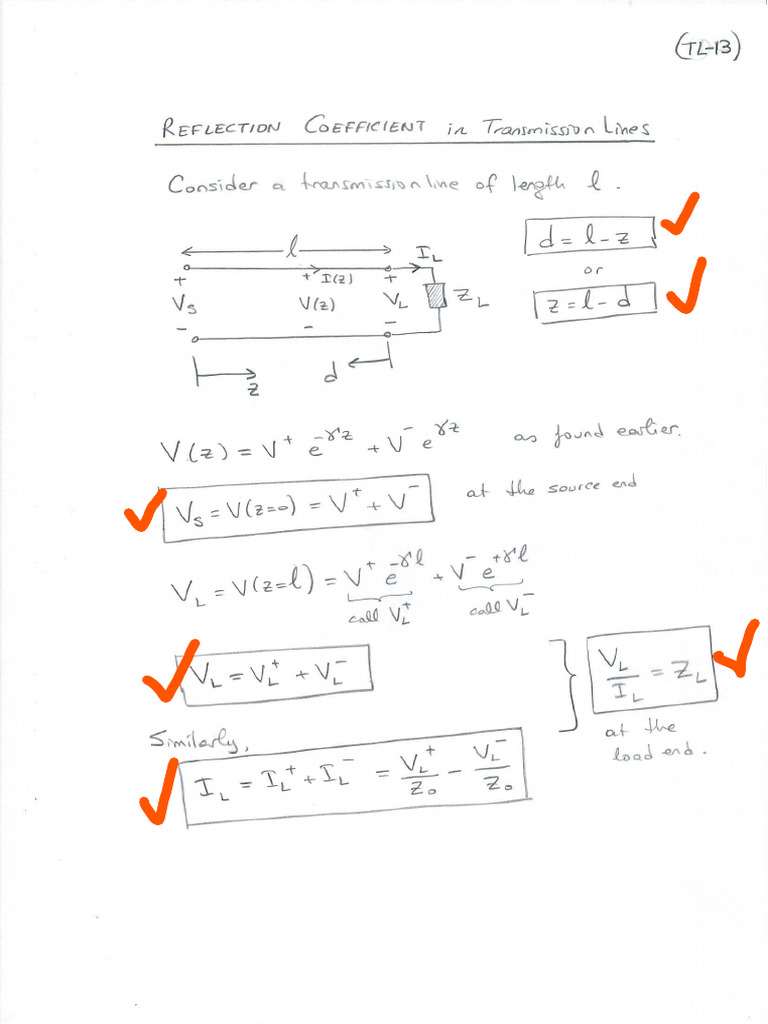 (TL-13)
REFLECTION COEFFICIENT in Transmission Lines
Consider a transmission line of length l.
d = l - z
or
z = l - d
l
I_L
+ + I(z) +
V_S V(z) V_L Z_L
- - -
z d
V(z) = V⁺ e^{-γz} + V⁻ e^{γz} as found earlier.
V_S = V(z=0) = V⁺ + V⁻ at the source end
V_L = V(z=l) = V⁺ e^{-γl} + V⁻ e^{+γl}
call V_L⁺ call V_L⁻
V_L = V_L⁺ + V_L⁻
V_L / I_L = Z_L
at the
load end.
Similarly,
I_L = I_L⁺ + I_L⁻ = V_L⁺ / Z₀ - V_L⁻ / Z₀